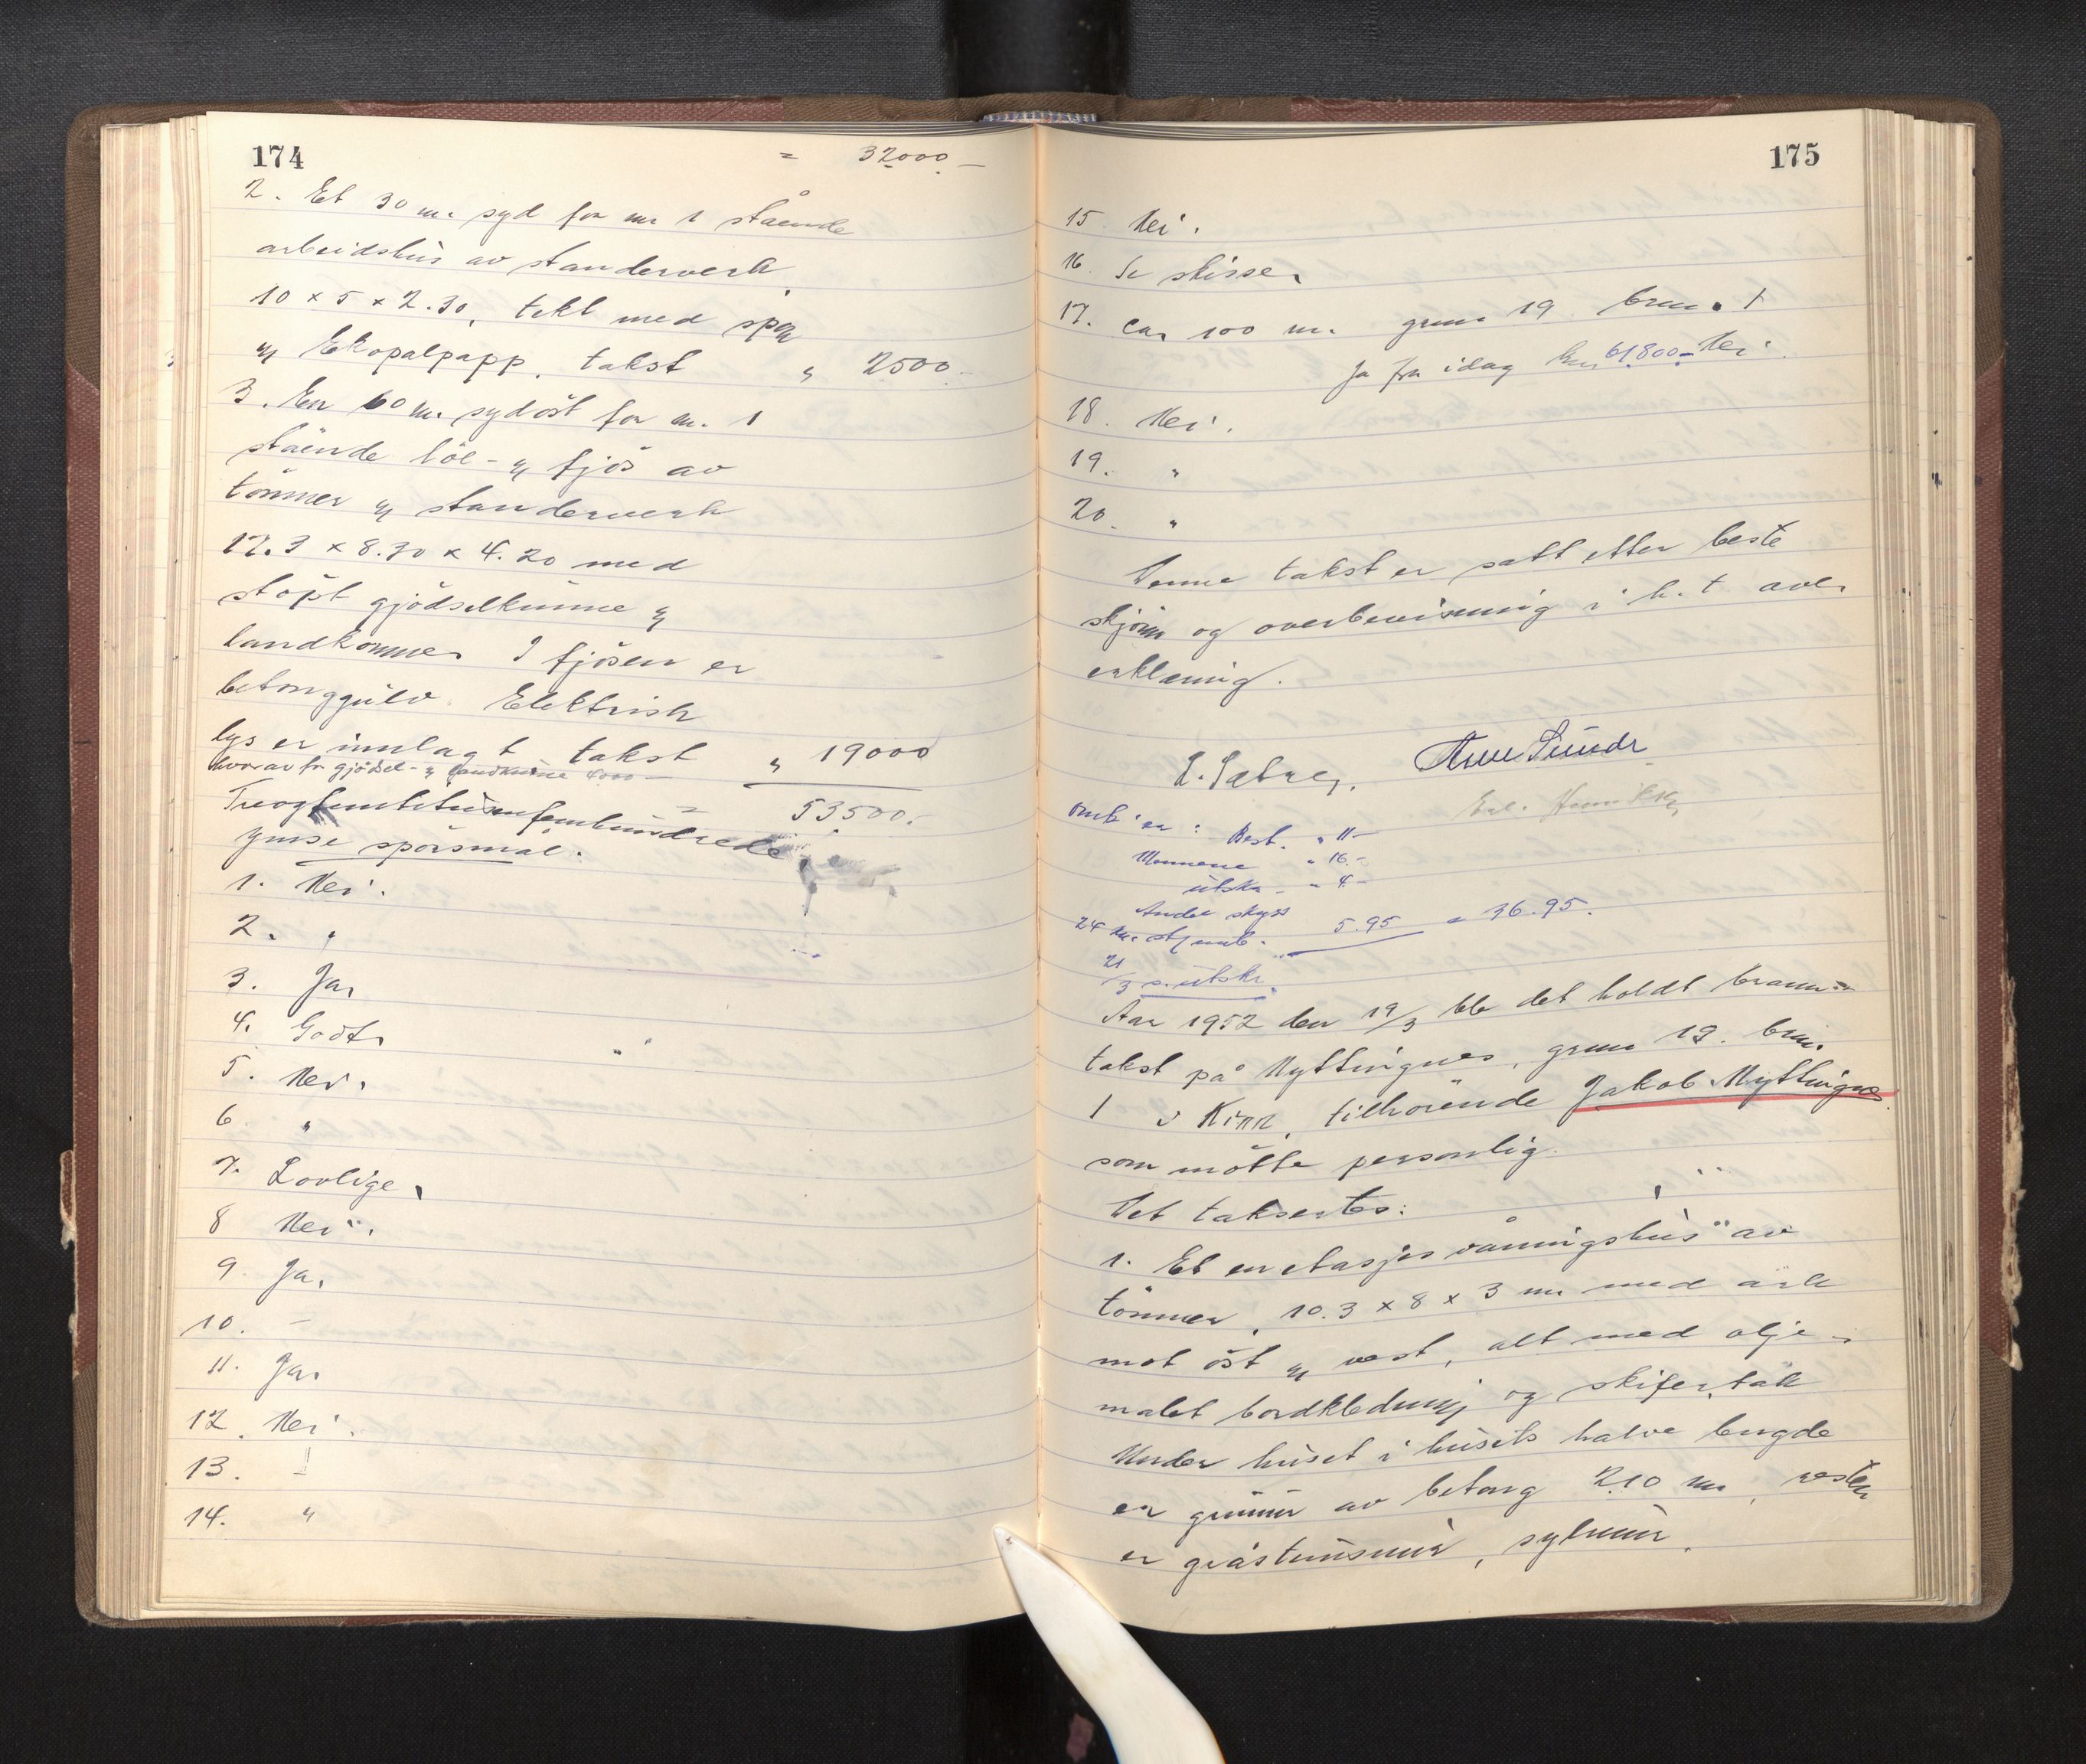 174
= 32000.-
2. Et 30 m. syd for nr 1 stående
arbeidshus av standerverk
10 x 5 x 2.30, tekt med spon
og Ekopalpapp, takst " 2500.-
3. En 60 m. sydöst for nr. 1
stående löe- og fjös av
tömmer og standerverk
17.3 x 8.30 x 4.20 med
stöpt gjödselkumme og
landkommer I fjösen er
betonggulv. Elektrisk
lys er innlagt takst " 19000
hvorav for gjödsel- og landkumme 4000.-
= 53500.-
Treogfemtitusenfemhundrede
Ymse spörsmål.
1. Nei.
2. "
3. Ja.
4. Godt.
5. Nei.
6. "
7. Lovlige.
8 Nei.
9. Ja.
10. -
11. Ja.
12. Nei.
13.
14. "
175
15. Nei.
16. Se skisse.
17. ca. 100 m. grnr. 19 brnr. 1
Ja fra idag kr. 61800.- Nei.
18. Nei.
19. "
20. "
Denne takst er satt etter beste
skjönn og overbevisning i h. t. avl.
erklæring.
L. Sætre,
Best. " 11.-
Mennene " 16.-
utskr. - " 4.-
Andel skyss
24 km. 5.95 = 36.95.
21/3 s. utskr.
Aar 1952 den 19/3 ble det holdt brann-
takst på Myttingnes, grnr 19. brnr.
1 i Kinn, tilhörende Jakob Myttingnes
som mötte personlig.
Det taksertes:
1. Et en etasjes våningshus av
tömmer, 10.3 x 8 x 3 m. med ark
mot öst og vest, alt med olje-
malt bordkledning og skifertak
Under huset i husets halve lengde
er grunnmur av betong 2.10 m, resten
er gråsteinsmur,